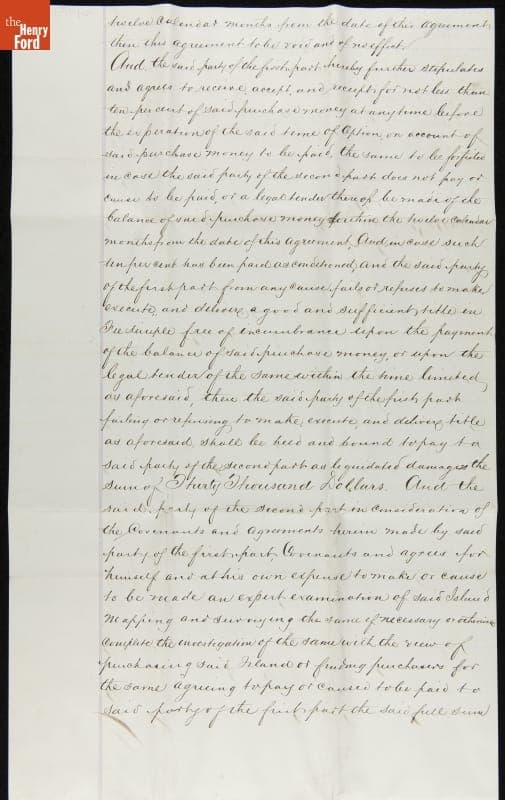 the
Henry
Ford
twelve Calendar months from the date of this agreement,
then this agreement to be void and of no effect.
And, the said party of the first part hereby further stipulates
and agrees to receive, accept, and receipt for not less than
ten per cent of said purchase money at any time before
the expiration of the said time of Option, on account of
said purchase money to be paid, the same to be forfeited
in case the said party of the second part does not pay or
cause to be paid, or a legal tender thereof be made of the
balance of said purchase money within the twelve calendar
months from the date of this Agreement, And in case such
ten per cent has been paid as conditioned, and the said party
of the first part from any cause, fails or refuses to make
execute, and deliver, a good and sufficient, title in
Fee simple free of incumbrance upon the payment
of the balance of said purchase money, or upon the
legal tender of the same within the time limited,
as aforesaid, then the said party of the first, part
failing or refusing to make, execute, and deliver, title
as aforesaid, shall be held and bound to pay to
said party of the second part as liquidated damages the
sum of Thirty Thousand Dollars. And the
said party of the second part in consideration of
the Covenants and Agreements herein made by said
party of the first part, Covenants and agrees for
himself and at his own expense to make or cause
to be made an expert examination of said Island
Mapping and surveying the same if necessary or otherwise
complete the investigation of the same with the view of
purchasing said Island or finding purchasers for
the same agreeing to pay or caused to be paid to
said party of the first part the said full sum